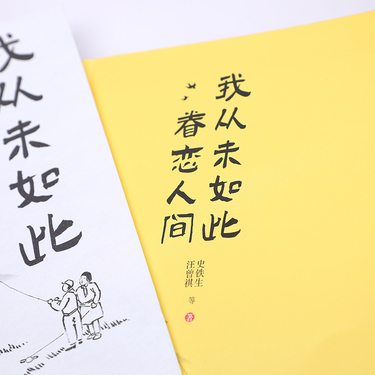 我从未如此
我从未如此
眷恋人间
史铁生
汪曾祺 等
著